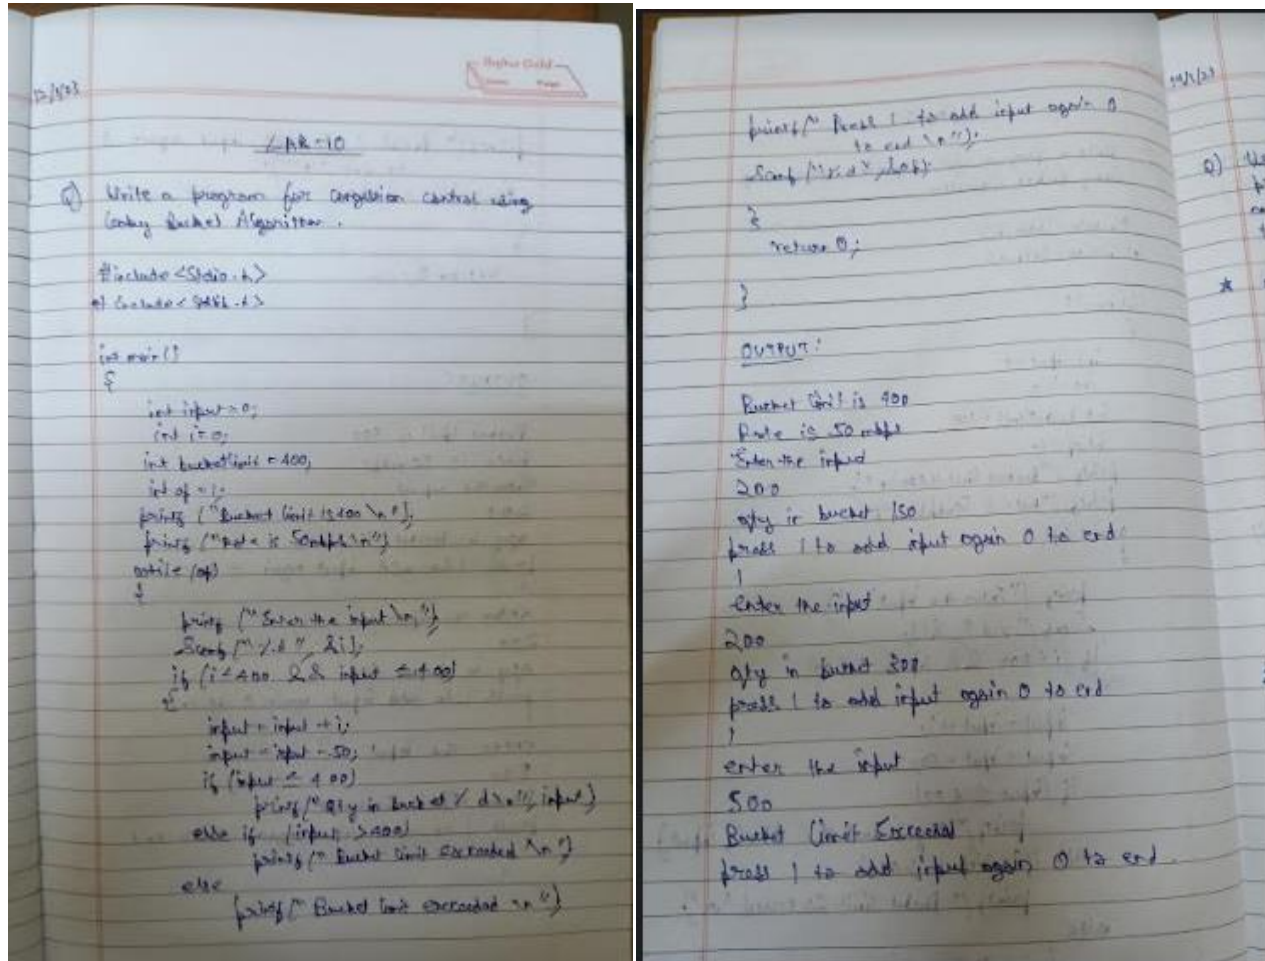 12/1/23
LAB-10
Q) Write a program for congestion control using
Leaky Bucket Algorithm.
#include <stdio.h>
#include <stdlib.h>
int main()
{
int input = 0;
int i = 0;
int bucketlimit = 400;
int op = 1;
printf ("Bucket limit is 400 \n");
printf ("Rate is 50mbps \n")
while (op)
{
printf ("Enter the input \n");
Scanf ("%d", &i);
if (i ≤ 400 && input ≤ 400)
{
input = input + i;
input = input - 50;
if (input ≤ 400)
printf (" Qty in bucket %d \n", input)
else if (input > 400)
printf (" Bucket limit exceeded \n")
else
printf (" Bucket limit exceeded \n")
printf (" Press 1 to add input again 0
to end \n");
Scanf ("%d", &op);
}
return 0;
}
OUTPUT:
Bucket limit is 400
Rate is 50 mbps
Enter the input
200
qty in bucket 150
press 1 to add input again 0 to end
1
enter the input
200
qty in bucket 300
press 1 to add input again 0 to end
1
enter the input
500
Bucket limit Exceeded
press 1 to add input again 0 to end.
Q)